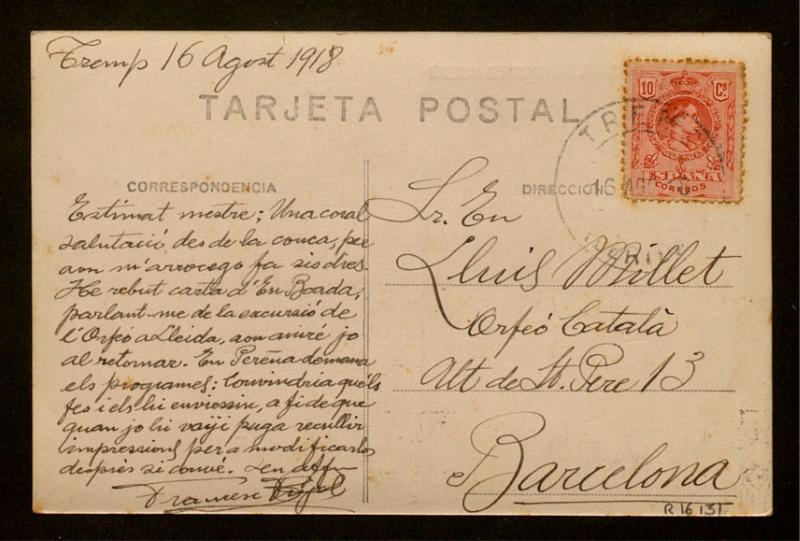 Tremp 16 Agost 1918
TARJETA POSTAL
10 Cs
ESPAÑA
CORREOS
TREMP
16 AGO
CORRESPONDENCIA
DIRECCION
Estimat mestre; Una coral
salutació des de la conca, per
aon m'arrocego fa sis dies.
He rebut carta d'En Boada,
parlant-me de la excursió de
l'Orfeó a Lleida, aon aniré jo
al retornar. En Pereña demana
els programes: Convindria qu'els
fes i els hi enviessin, a fi de que
quan jo hi vaiji puga recullir
impressions per a modificarlos
després si convé.
Francesc Pujol
Sr. En
Lluis Millet
Orfeó Català
Alt de St. Pere 13
Barcelona
R 16 131